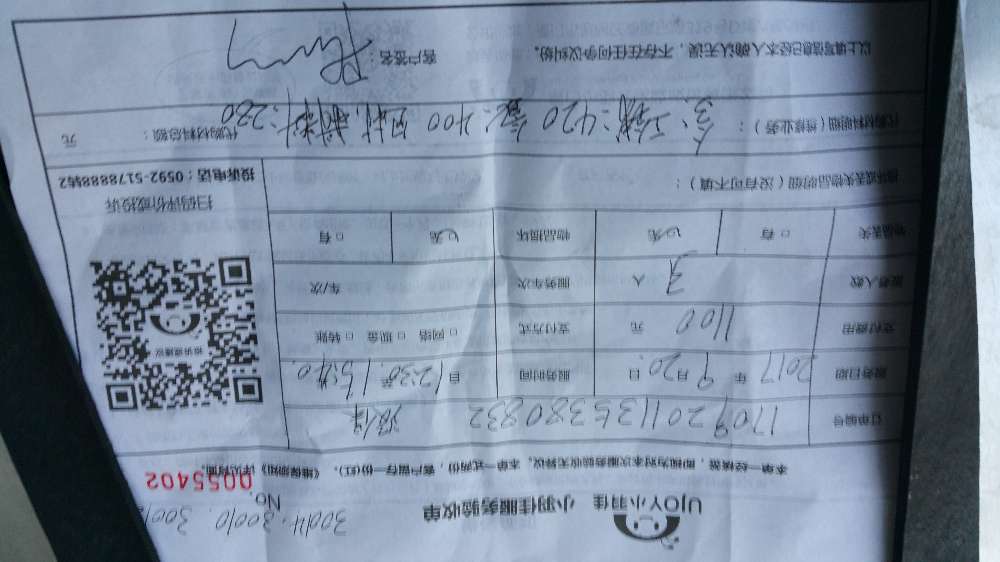 UJOY小羽佳 小羽佳服务验收单
30014. 30010. 3001
No. 0055402
本单一经核签，即视为对本次服务验收无异议。本单一式两份，客户留存一份（红）。《维保须知》详见背面。
订单编号 1709201135380832
服务日期 2017 年 9 月 20 日 服务时间 自 12:30 至 15:40
支付费用 1100 元 支付方式 □ 网络 □ 现金 □ 转账
服务人数 3 人 服务车次 车/次
物品丢失 □ 有 □ 无 物品损坏 □ 无 □ 有
扫码评价或投诉
投诉电话：0592-5178888转2
损坏或丢失物品明细（没有可不填）：
代购材料明细（维修业务）： 420 400 材料:280 代购材料总额： 元
以上填写信息已经本人确认无误，不存在任何争议纠纷。 客户签名：